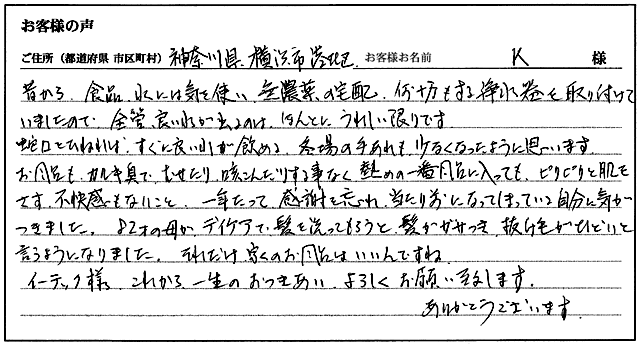 お客様の声
ご住所（都道府県 市区町村） 神奈川県 横浜市 港北区 お客様お名前 K 様
昔から、食品、水には気を使い、無農薬の宅配、何十万もする浄水器を取り付けて
いましたので、全管、良い水が出るのは、ほんとに、うれしい限りです
蛇口をひねれば、すぐに良い水が飲める、冬場の手あれも少なくなったように思います。
お風呂も、カルキ臭で、むせたり、咳こんだりする事なく 熱めの一番風呂に入っても、ピリピリと肌を
さす、不快感もないこと、一年たって、感謝を忘れ、当たり前になってしまっている自分に気が
つきました。 82才の母が、デイケアで、髪を洗ってもらうと、髪がガサつき、抜け毛がひどいと
言うようになりました。 それだけ、家のお風呂はいいんですね。
イーテック様、これから、一生のおつきあい、よろしくお願い致します。
ありがとうございます。